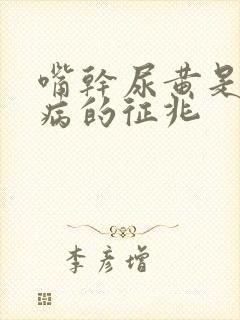 嘴幹尿黄是
病的征兆
李彦增